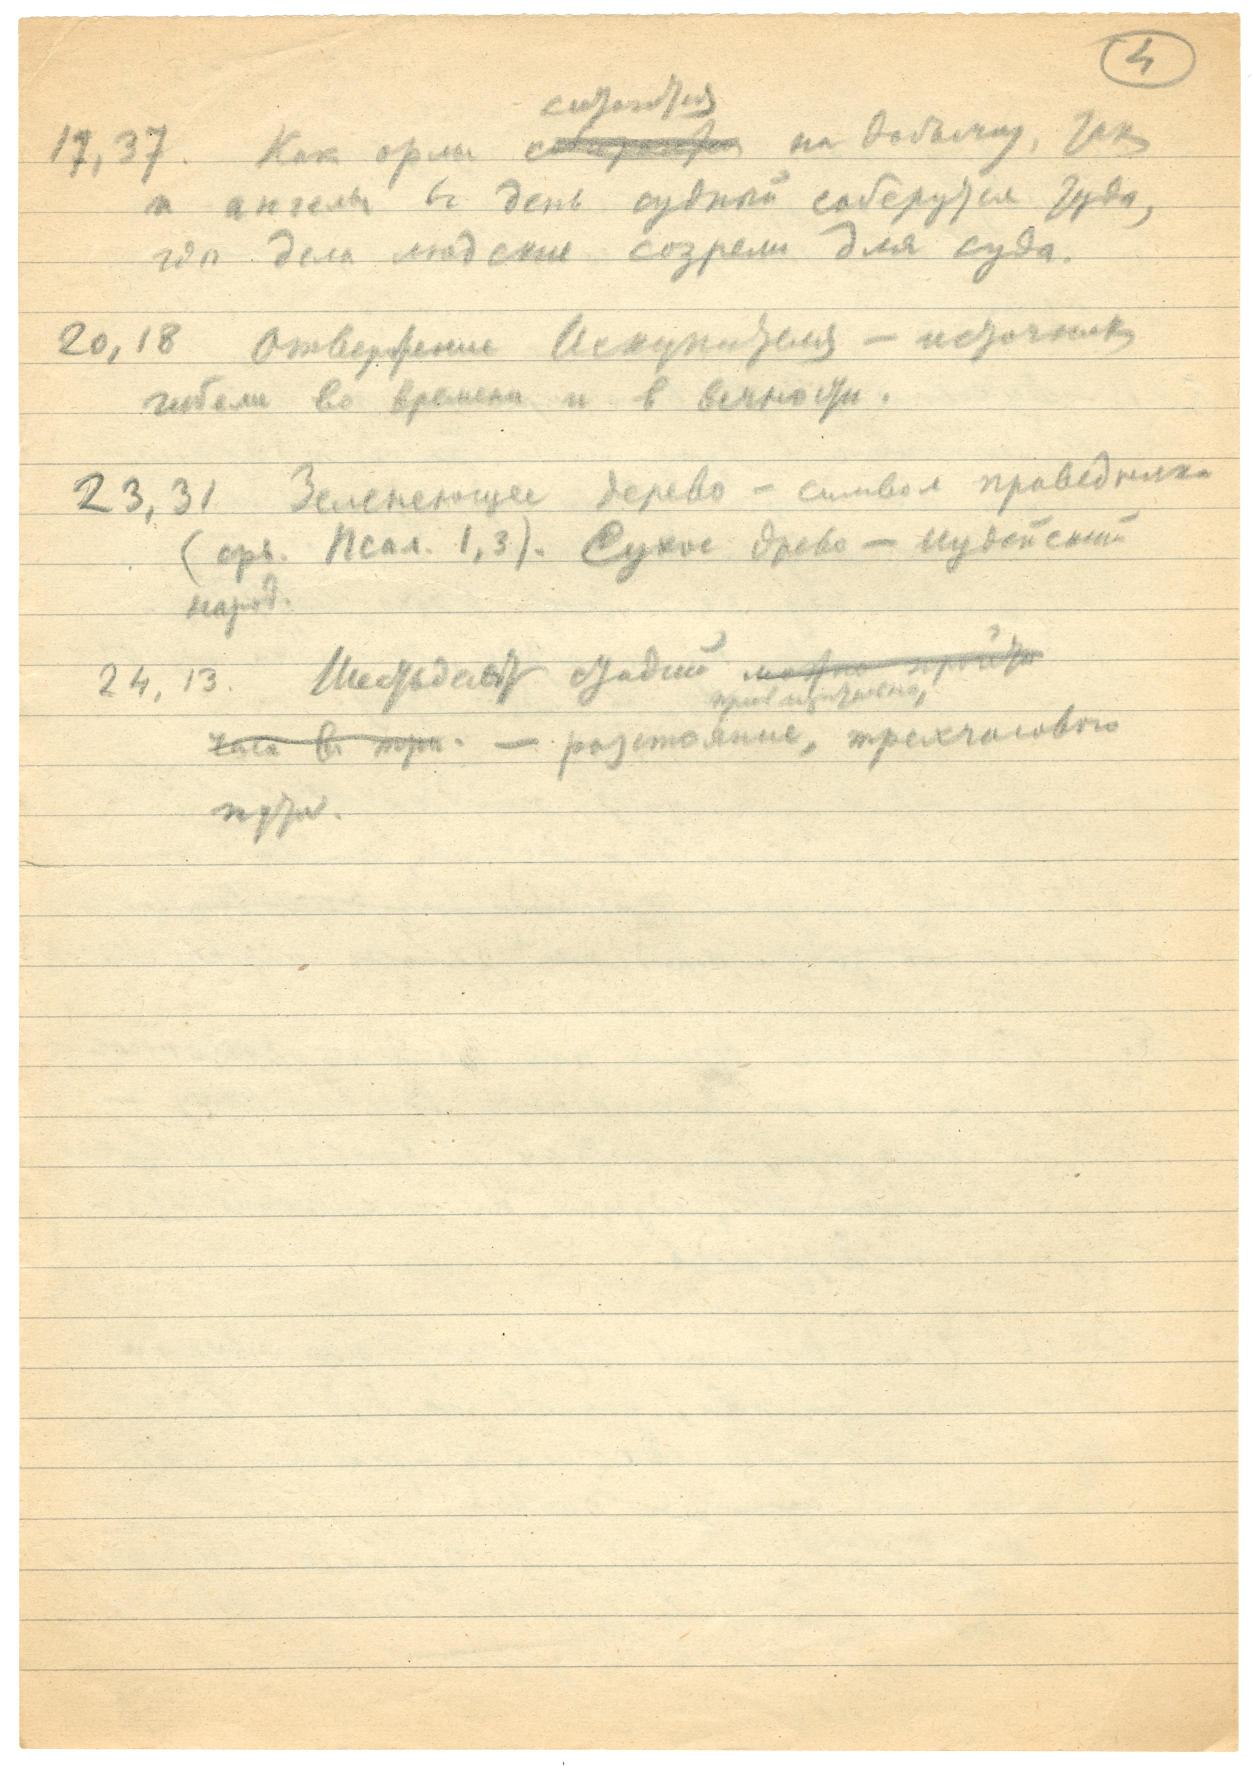 4
слетаются
17,37. Как орлы собираются на добычу, так
и ангелы в день судный соберутся туда,
где дела людские созрели для суда.
20,18 Отвержение Искупителя — источник
гибели во времени и в вечности.
23,31 Зеленеющее дерево — символ праведника
(срв. Псал. 1,3). Сухое древо — иудейский
народ.
24, 13. Шестьдесят стадий можно пройти
приблизительно,
часа в три. — расстояние, трехчасового
пути.